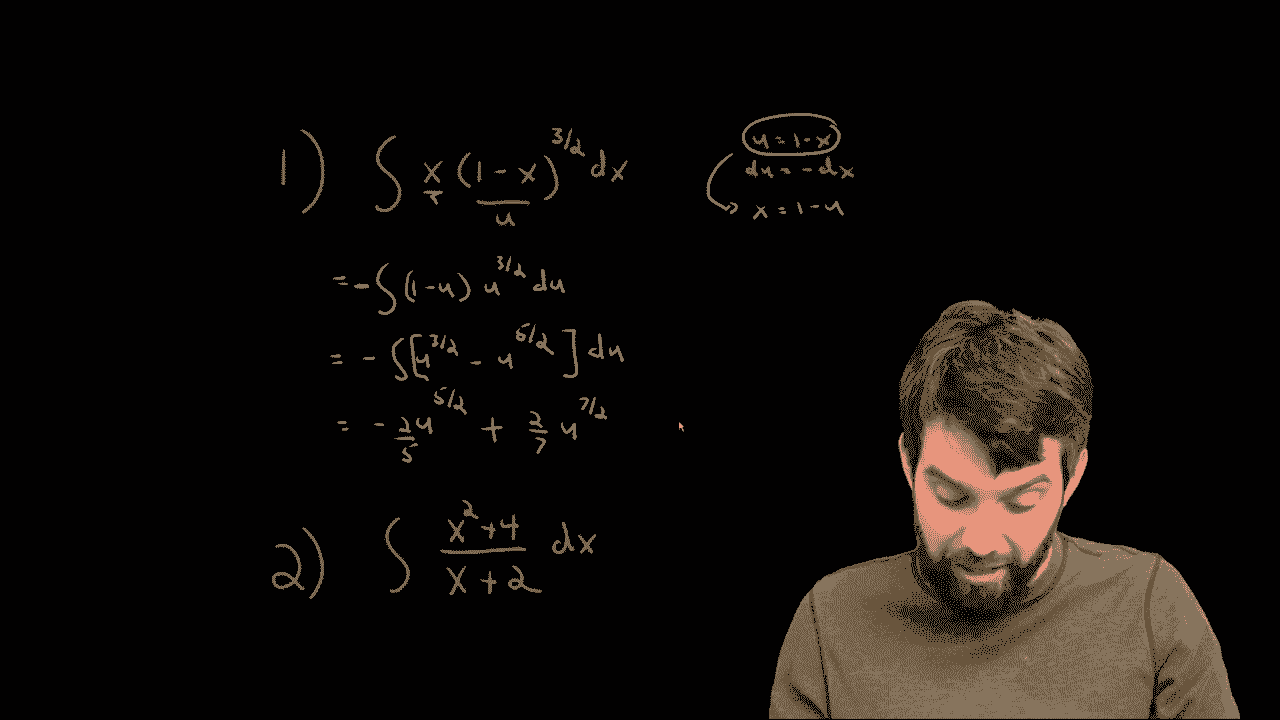 1) ∫ x (1 - x)^{3/2} dx
u
u = 1 - x
du = - dx
x = 1 - u
= - ∫ (1 - u) u^{3/2} du
= - ∫ [u^{3/2} - u^{5/2}] du
= - 2/5 u^{5/2} + 2/7 u^{7/2}
2) ∫ (x^2 + 4)/(x + 2) dx